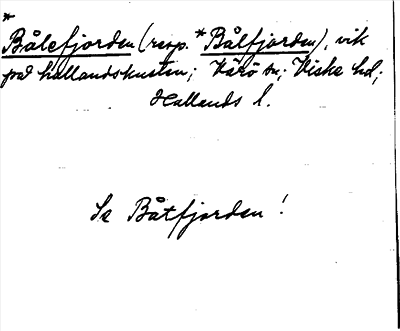 *
Bålefjorden (resp. *Bålfjorden), vik
på hallandskusten; Värö sn; Viske hd;
Hallands l.
Se Båtfjorden!